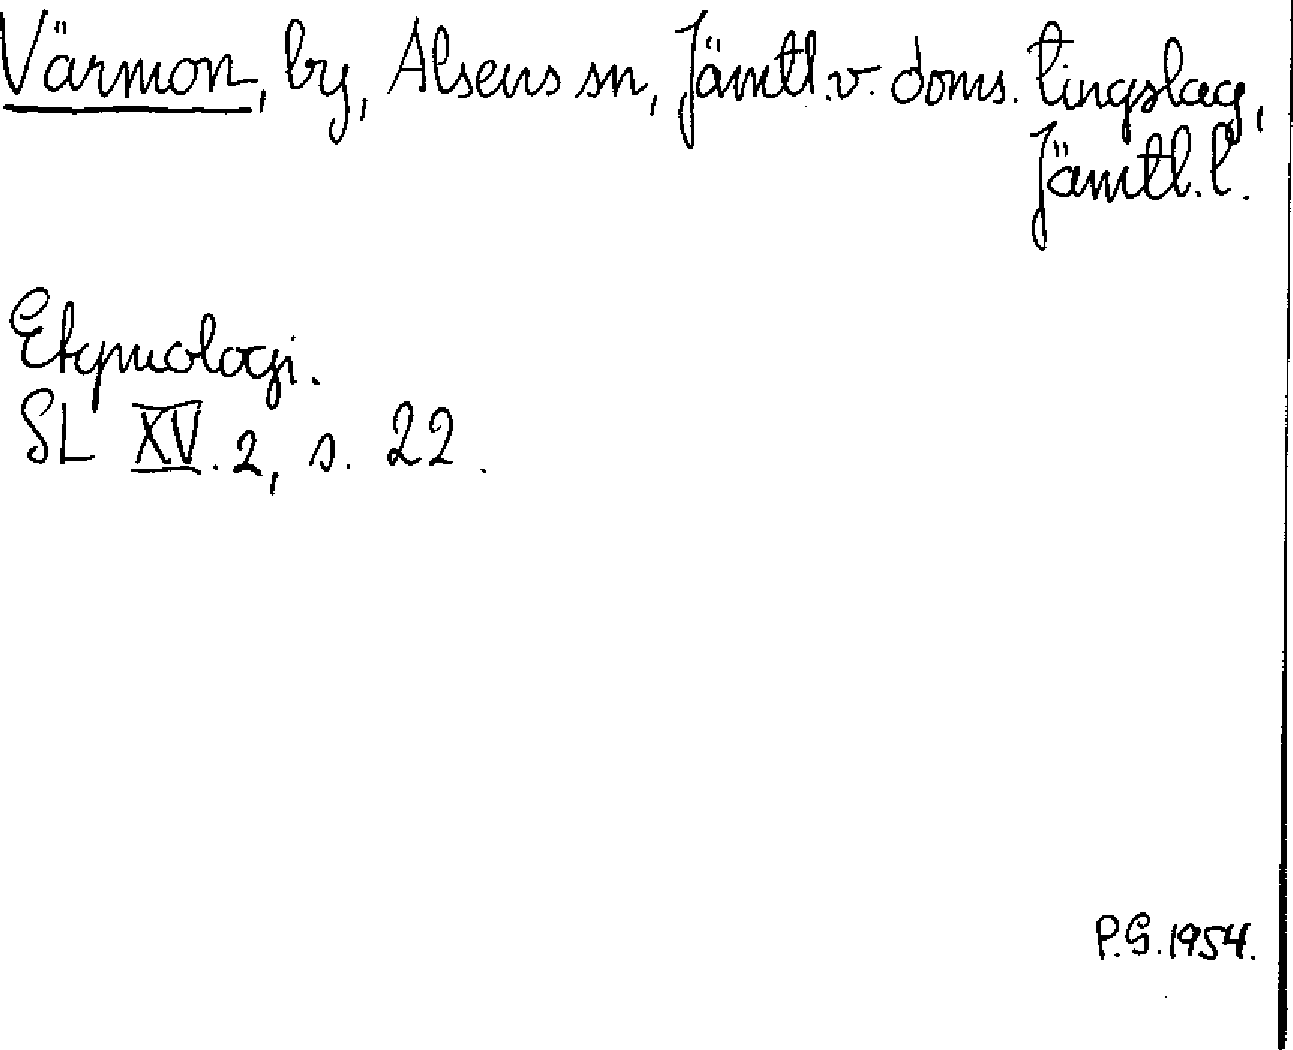 Värmon, by, Alsens sn, Jämtl. v. doms. tingslag,
Jämtl. l.
Etymologi.
SL XV. 2, s. 22.
P.G. 1954.